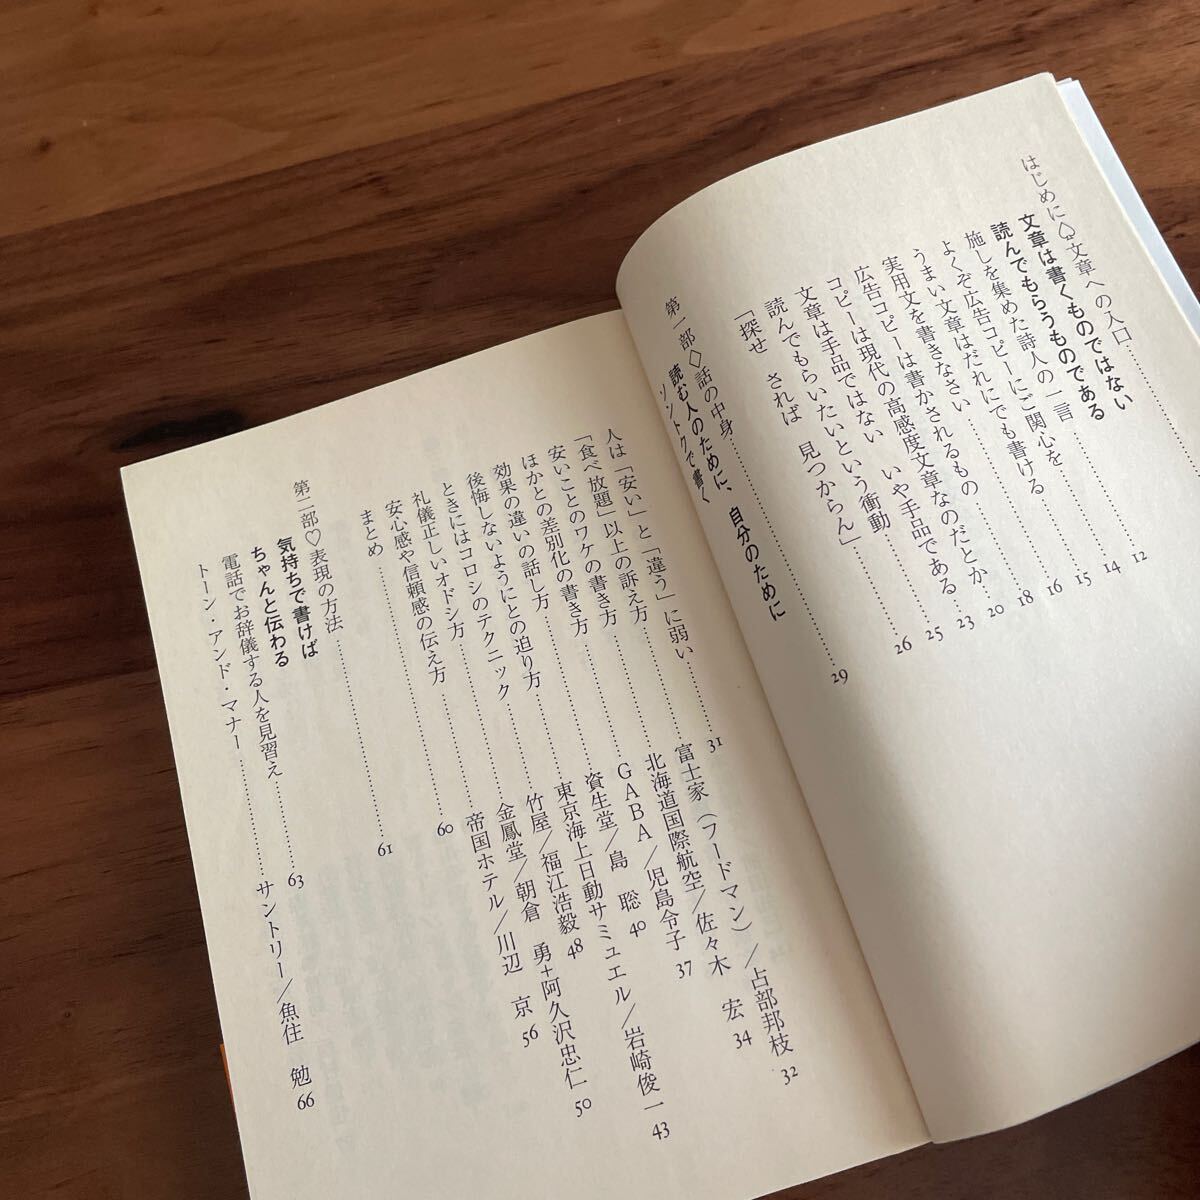 はじめに♤文章への入口……
文章は書くものではない
読んでもらうものである
施しを集めた詩人の一言……12
よくぞ広告コピーにご関心を……14
うまい文章はだれにでも書ける……15
実用文を書きなさい……16
広告コピーは書かされるもの……18
コピーは現代の高感度文章なのだとか……20
文章は手品ではない いや手品である……23
読んでもらいたいという衝動……25
「探せ されば 見つからん」……26
第一部◇話の中身……29
読む人のために、自分のために
ソントクで書く
人は「安い」と「違う」に弱い……31
「食べ放題」以上の訴え方……富士家(フードマン)/占部邦枝 32
安いことのワケの書き方……北海道国際航空/佐々木 宏 34
ほかとの差別化の書き方……GABA/児島令子 37
効果の違いの話し方……資生堂/島 聡 40
後悔しないようにとの迫り方……東京海上日動サミュエル/岩崎俊一 43
ときにはコロシのテクニック……竹屋/福江浩毅 48
礼儀正しいオドシ方……金鳳堂/朝倉 勇+阿久沢忠仁 50
安心感や信頼感の伝え方……帝国ホテル/川辺 京 56
まとめ……60
第二部♡表現の方法……61
気持ちで書けば
ちゃんと伝わる
電話でお辞儀する人を見習え……63
トーン・アンド・マナー……サントリー/魚住 勉 66